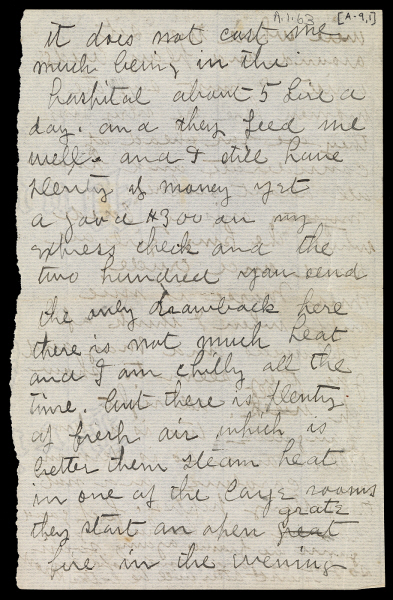 A.1.63 [A-9,1]
it does not cost me
much being in the
hospital about 5 lire a
day. and they feed me
well. and I still have
plenty of money yet
a good $300 on my
express check and the
two hundred you send
the only drawback here
there is not much heat
and I am chilly all the
time. but there is plenty
of fresh air which is
better then steam heat
in one of the large rooms
grate
they start an open great
fire in the evening